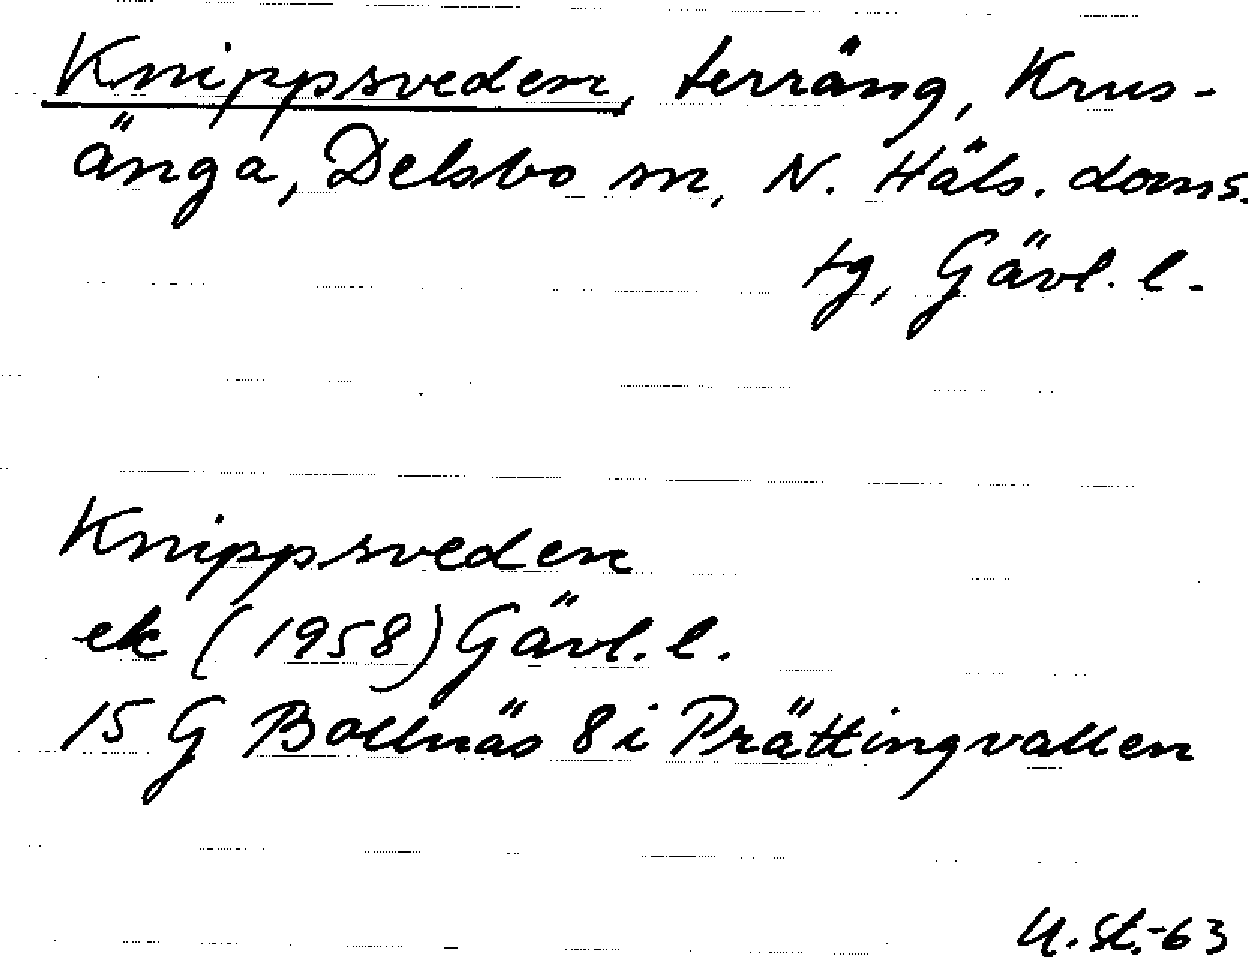 Knippsveden, terräng, Krus-
änga, Delsbo sn, N. Häls. doms.
tg, Gävl. l.
Knippsveden
ek (1958) Gävl. l.
15 G Bollnäs 8 i Prättingvallen
U. St.-63